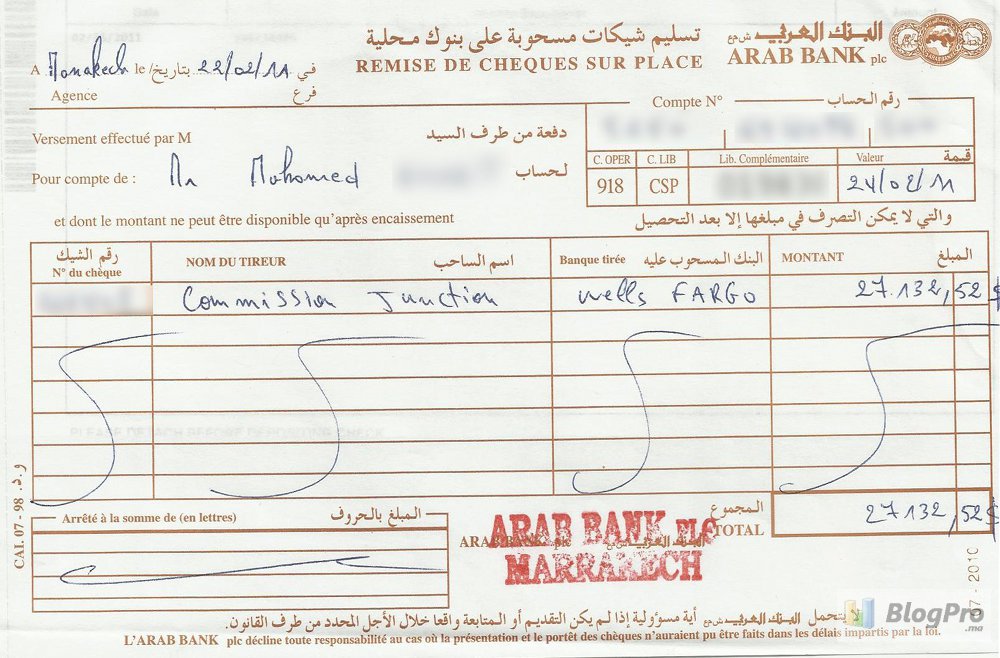 تسليم شيكات مسحوبة على بنوك محلية
REMISE DE CHEQUES SUR PLACE
البنك العربي ش م ع
ARAB BANK plc
A Marrakech le /بتاريخ 22/02/11 في
Agence فرع
Compte N° رقم الحساب
Versement effectué par M دفعة من طرف السيد
Pour compte de : Mr Mohamed لحساب
C. OPER C. LIB Lib. Complémentaire Valeur قيمة
918 CSP 24/02/11
et dont le montant ne peut être disponible qu'après encaissement والتي لا يمكن التصرف في مبلغها إلا بعد التحصيل
رقم الشيك
N° du chèque
NOM DU TIREUR اسم الساحب
Banque tirée البنك المسحوب عليه
MONTANT المبلغ
Commission Junction Wells FARGO 27.132,52 $
PLEASE DETACH BEFORE DEPOSITING CHECK
Arrêté à la somme de (en lettres) المبلغ بالحروف
المجموع
TOTAL 27132,52$
ARAB BANK plc البنك العربي ش م ع
ARAB BANK PLC
MARRAKECH
CAL 07 - 98 و.د.
07 - 2010
لا يتحمل البنك العربي ش م ع أية مسؤولية إذا لم يكن التقديم أو المتابعة واقعا خلال الأجل المحدد من طرف القانون.
L'ARAB BANK plc décline toute responsabilité au cas où la présentation et le portêt des chèques n'auraient pu être faits dans les délais impartis par la loi.
BlogPro
.ma